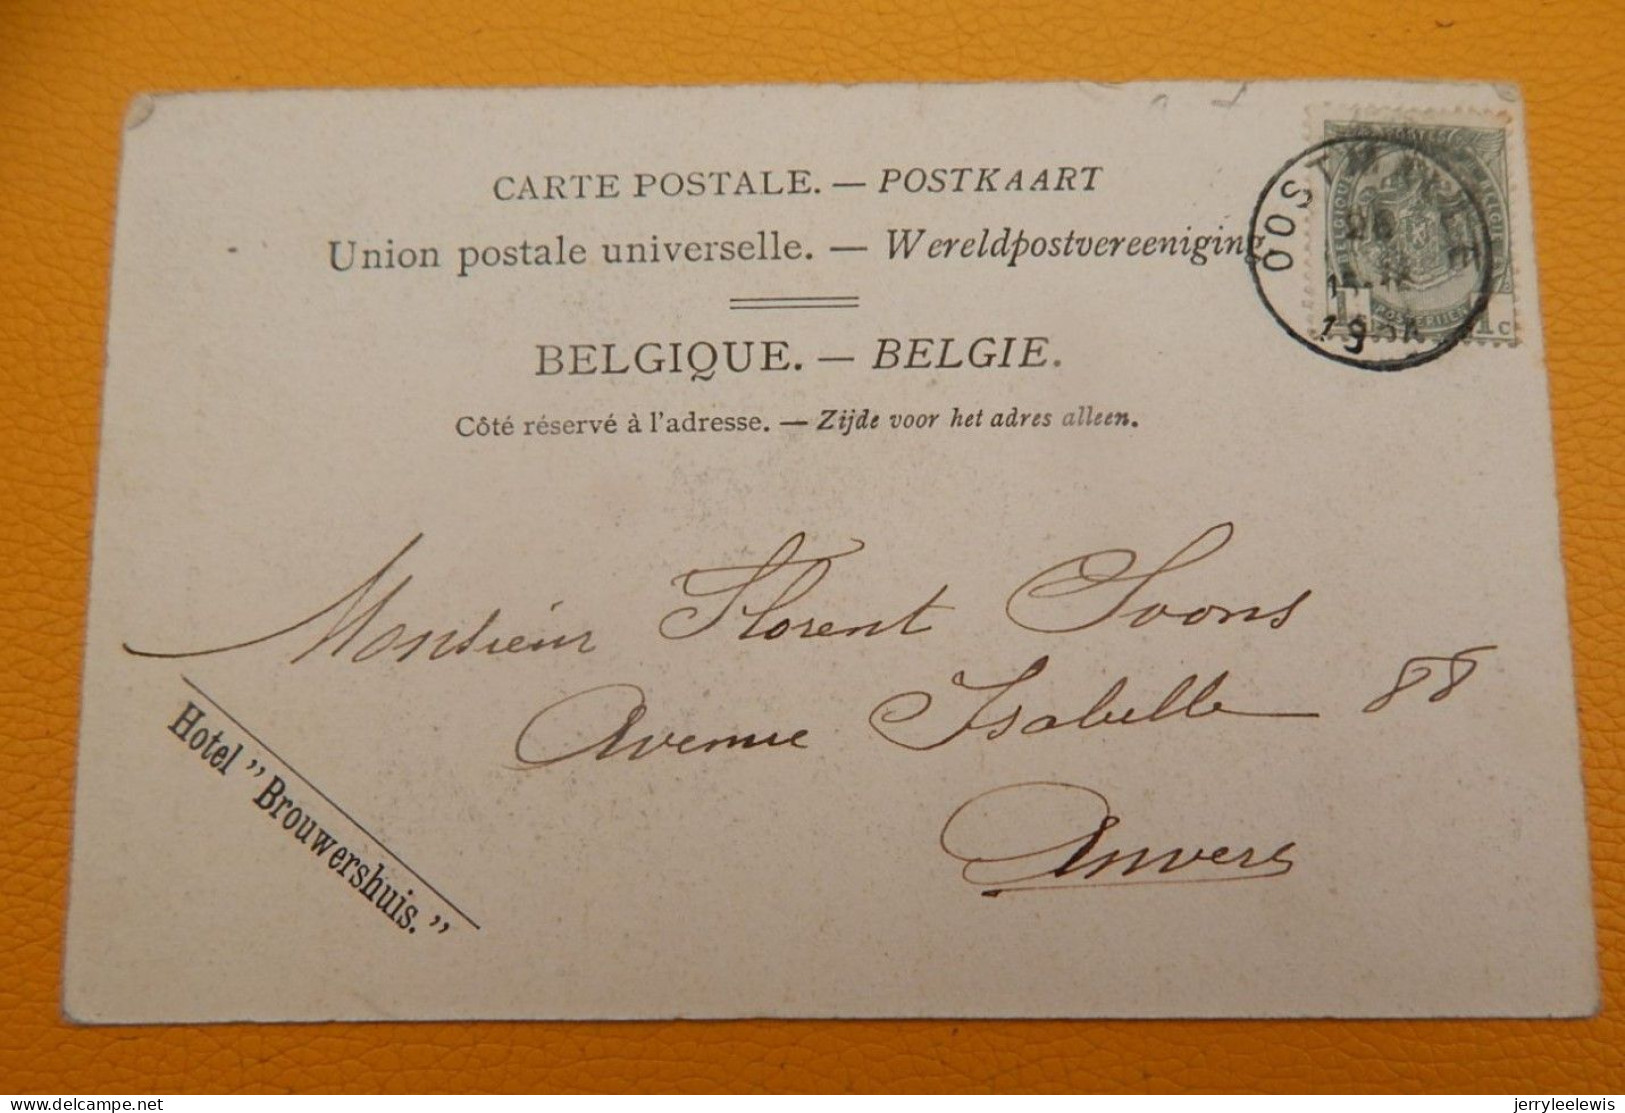 CARTE POSTALE. — POSTKAART
Union postale universelle. — Wereldpostvereeniging
BELGIQUE. — BELGIE.
Côté réservé à l'adresse. — Zijde voor het adres alleen.
POSTES
BELGIQUE
BELGIË
POSTERIJEN
1 c
Monsieur Florent Soons
Avenue Isabelle 88
Anvers
Hotel "Brouwershuis."
delcampe.net
jerryleelewis